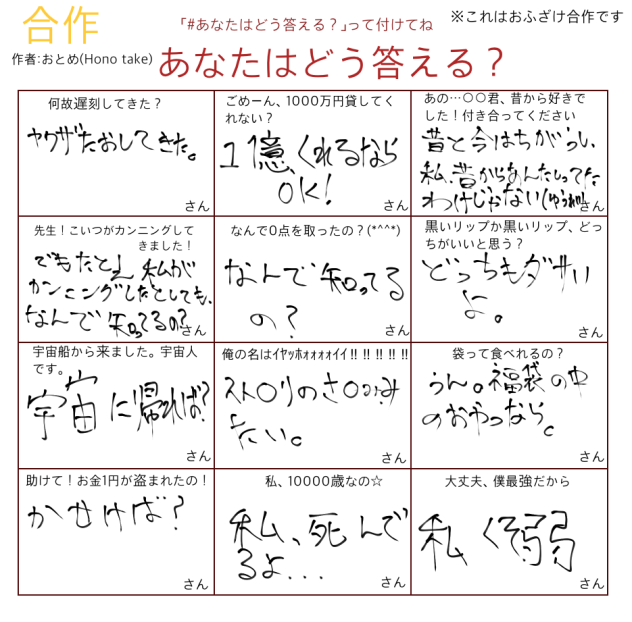 合作
「#あなたはどう答える？」って付けてね
※これはおふざけ合作です
作者:おとめ(Hono take)
あなたはどう答える？
何故遅刻してきた？
ヤクザたおしてきた。
さん
ごめーん、1000万円貸してく
れない？
1億、くれるなら
OK!
さん
あの…○○君、昔から好きで
した！付き合ってください
昔と今はちがうし、
私、昔からあんたしってた
わけじゃない
さん
先生！こいつがカンニングして
きました！
でもたとえ私が
カンニングしたとしても、
なんで知ってるの?
さん
なんで0点を取ったの？(*^^*)
なんで知ってる
の？
さん
黒いリップか黒いリップ、どっ
ちがいいと思う？
どっちもダサい
よ。
さん
宇宙船から来ました。宇宙人
です。
宇宙に帰れば?
さん
俺の名はｲﾔｯﾎｫｫｫｫイイ!!!!!!!!!!
スト○リのさ○みみ
たい。
さん
袋って食べれるの？
うん。福袋の中
のおやつなら。
さん
助けて！お金1円が盗まれたの！
かせげば？
さん
私、10000歳なの☆
私、死んで
るよ...
さん
大丈夫、僕最強だから
私くそ弱
さん